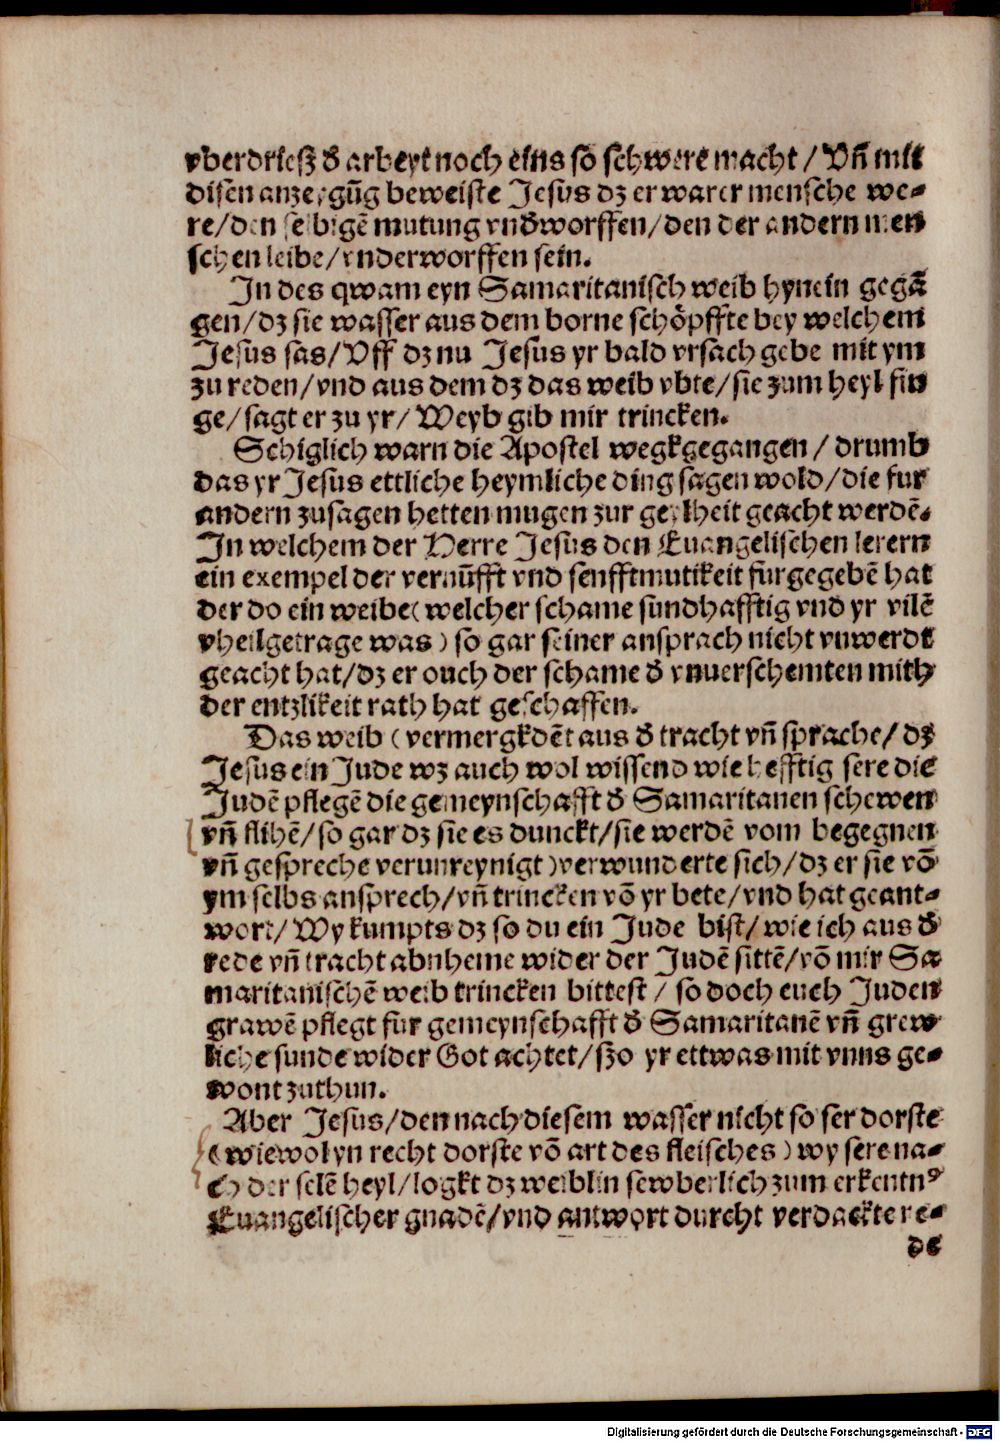 vberdriesz d̕ arbeyt noch eins so schwere macht / Vñ mit
disen anzeygũg beweiste Jesus dz er warer mensche we-
re/den selbigẽ mutung vnd̕worffen/den der andern men
schen leibe/vnderworffen sein.
In des qwam eyn Samaritanisch weib hynein gegã
gen/dz sie wasser aus dem borne schöpffte bey welchem
Jesus sas/Vff dz nu Jesus yr bald vrsach gebe mit ym
zu reden/vnd aus dem dz das weib vbte/sie zum heyl fin
ge/sagt er zu yr/ Weyb gib mir trincken.
Schiglich warn die Apostel wegkgegangen / drumb
das yr Jesus ettliche heymliche ding sagen wold/die fur
andern zusagen hetten mugen zur geylheit geacht werdẽ.
In welchem der Herre Jesus den Euangelischen lerern
ein exempel der vernũfft vnd senfftmutikeit fur gegebẽ hat
der do ein weibe( welcher schame sundhafftig vnd yr vilẽ
vheilgetrage was ) so gar seiner ansprach nicht vnwerdt
geacht hat/dz er ouch der schame d̕ vnuerschemten mith
der entzlikeit rath hat geschaffen.
Das weib ( vermergkdẽt aus d̕ tracht vñ sprache/ dz
Jesus ein Jude wz auch wol wissend wie hefftig sere die
Judẽ pflegẽ die gemeynschafft d̕ Samaritanen schewen
vñ flihẽ/so gar dz sie es dunckt/sie werdẽ vom begegnen
vñ gespreche verunreynigt )verwunderte sich/dz er sie võ
ym selbs ansprech/vñ trincken võ yr bete/vnd hat geant-
wort/ Wy kumpts dz so du ein Jude bist/ wie ich aus d̕
rede vñ tracht abnheme wider der Judẽ sittẽ/võ mir Sa
maritanischẽ weib trincken bittest / so doch euch Juden
grawẽ pflegt fur gemeynschafft d̕ Samaritanẽ vñ grew
liche sunde wider Got achtet/szo yr ettwas mit vnns ge-
wont zuthun.
Aber Jesus/den nach diesem wasser nicht so ser dorste
( wiewol yn recht dorste võ art des fleisches ) wy sere na-
ch der selẽ heyl/logkt dz weiblin sewberlich zum erkentnꝰ
Euangelischer gnadẽ/vnd antwort durcht verdackte re-
de
Digitalisierung gefördert durch die Deutsche Forschungsgemeinschaft - DFG